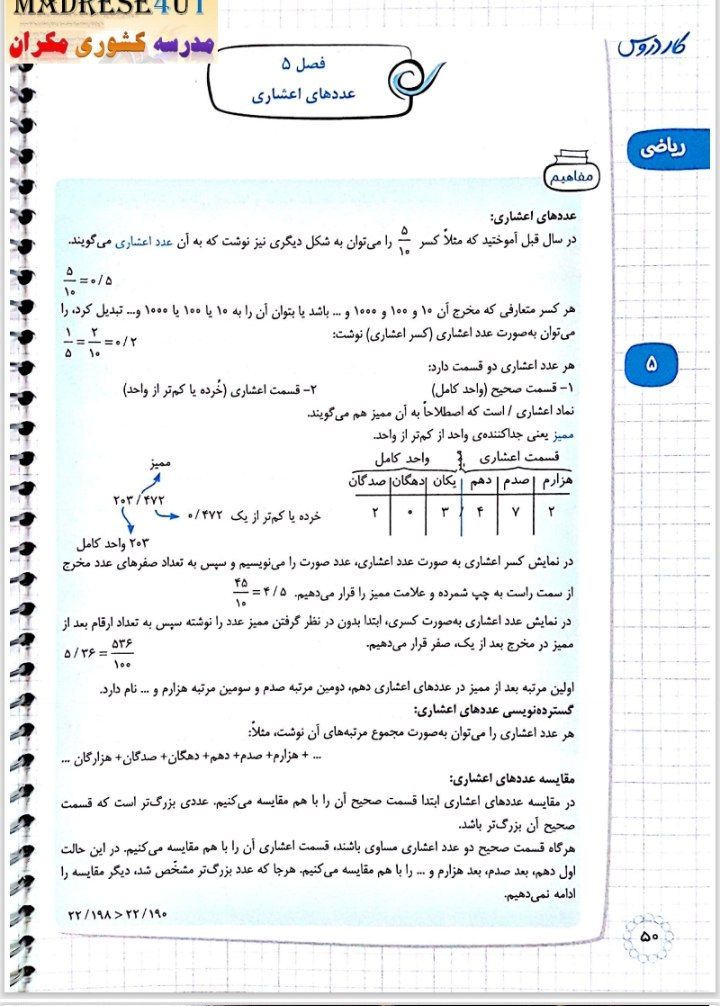 MADRESE4U1
مدرسه کشوری مکران
کار دروس
فصل ۵
عددهای اعشاری
ریاضی
مفاهیم
عددهای اعشاری:
در سال قبل آموختید که مثلاً کسر ۵/۱۰ را می‌توان به شکل دیگری نیز نوشت که به آن عدد اعشاری می‌گویند.
۵/۱۰ = ۰/۵
هر کسر متعارفی که مخرج آن ۱۰ و ۱۰۰ و ۱۰۰۰ و ... باشد یا بتوان آن را به ۱۰ یا ۱۰۰ یا ۱۰۰۰ و... تبدیل کرد، را
می‌توان به‌صورت عدد اعشاری (کسر اعشاری) نوشت:
۱/۵ = ۲/۱۰ = ۰/۲
هر عدد اعشاری دو قسمت دارد:
۱- قسمت صحیح (واحد کامل) ۲- قسمت اعشاری (خُرده یا کم‌تر از واحد)
نماد اعشاری / است که اصطلاحاً به آن ممیز هم می‌گویند.
ممیز یعنی جداکننده‌ی واحد از کم‌تر از واحد.
قسمت اعشاری ممیز واحد کامل
هزارم صدم دهم یکان دهگان صدگان
۲ ۷ ۴ / ۳ ۰ ۲
ممیز
۲۰۳/۴۷۲
خرده یا کم‌تر از یک ۰/۴۷۲
۲۰۳ واحد کامل
در نمایش کسر اعشاری به صورت عدد اعشاری، عدد صورت را می‌نویسیم و سپس به تعداد صفرهای عدد مخرج
از سمت راست به چپ شمرده و علامت ممیز را قرار می‌دهیم. ۴۵/۱۰ = ۴/۵
در نمایش عدد اعشاری به‌صورت کسری، ابتدا بدون در نظر گرفتن ممیز عدد را نوشته سپس به تعداد ارقام بعد از
ممیز در مخرج بعد از یک، صفر قرار می‌دهیم.
۵/۳۶ = ۵۳۶/۱۰۰
اولین مرتبه بعد از ممیز در عددهای اعشاری دهم، دومین مرتبه صدم و سومین مرتبه هزارم و ... نام دارد.
گسترده‌نویسی عددهای اعشاری:
هر عدد اعشاری را می‌توان به‌صورت مجموع مرتبه‌های آن نوشت، مثلاً:
... + هزارم+ صدم+ دهم+ دهگان+ صدگان+ هزارگان ...
مقایسه عددهای اعشاری:
در مقایسه عددهای اعشاری ابتدا قسمت صحیح آن را با هم مقایسه می‌کنیم. عددی بزرگ‌تر است که قسمت
صحیح آن بزرگ‌تر باشد.
هرگاه قسمت صحیح دو عدد اعشاری مساوی باشند، قسمت اعشاری آن را با هم مقایسه می‌کنیم. در این حالت
اول دهم، بعد صدم، بعد هزارم و ... را با هم مقایسه می‌کنیم. هرجا که عدد بزرگ‌تر مشخّص شد، دیگر مقایسه را
ادامه نمی‌دهیم.
۲۲/۱۹۸ > ۲۲/۱۹۰
۵
۵۰